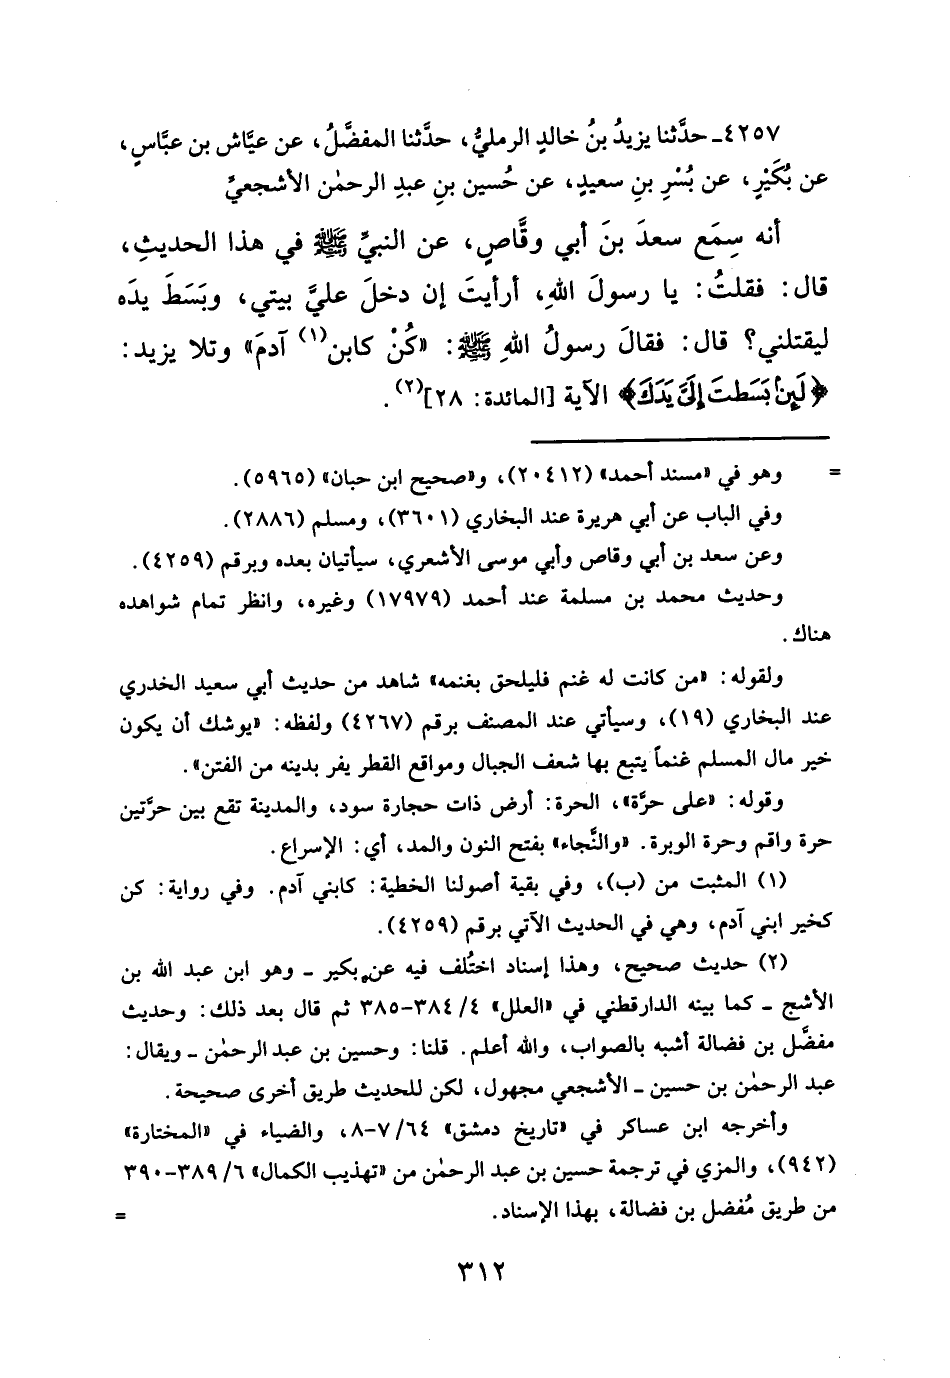 ٤٢٥٧ـ حدَّثنا يزيدُ بنُ خالدٍ الرمليُّ، حدَّثنا المفضَّلُ، عن عيَّاش بن عبَّاسٍ،
عن بُكَيْرٍ، عن بُسْرِ بنِ سعيدٍ، عن حُسين بنِ عبدِ الرحمٰن الأشجعيِّ
أنه سِمَع سعدَ بنَ أبي وقَّاصٍ، عن النبيِّ ﷺ في هذا الحديثِ،
قال: فقلتُ: يا رسولَ اللهِ، أرأيتَ إن دخلَ عليَّ بيتي، وبَسَطَ يدَه
ليقتلني؟ قال: فقالَ رسولُ اللهِ ﷺ: «كُنْ كابن(١) آدمَ» وتلا يزيد:
﴿لَئِنۢ بَسَطتَ إِلَىَّ يَدَكَ﴾ الآية [المائدة: ٢٨](٢).
= وهو في «مسند أحمد» (٢٠٤١٢)، و«صحيح ابن حبان» (٥٩٦٥).
وفي الباب عن أبي هريرة عند البخاري (٣٦٠١)، ومسلم (٢٨٨٦).
وعن سعد بن أبي وقاص وأبي موسى الأشعري، سيأتيان بعده وبرقم (٤٢٥٩).
وحديث محمد بن مسلمة عند أحمد (١٧٩٧٩) وغيره، وانظر تمام شواهده
هناك.
ولقوله: «من كانت له غنم فليلحق بغنمه» شاهد من حديث أبي سعيد الخدري
عند البخاري (١٩)، وسيأتي عند المصنف برقم (٤٢٦٧) ولفظه: «يوشك أن يكون
خير مال المسلم غنماً يتبع بها شعف الجبال ومواقع القطر يفر بدينه من الفتن».
وقوله: «على حرَّة»، الحرة: أرض ذات حجارة سود، والمدينة تقع بين حرَّتين
حرة واقم وحرة الوبرة. «والنَّجاء» بفتح النون والمد، أي: الإسراع.
(١) المثبت من (ب)، وفي بقية أصولنا الخطية: كابني آدم. وفي رواية: كن
كخير ابني آدم، وهي في الحديث الآتي برقم (٤٢٥٩).
(٢) حديث صحيح، وهذا إسناد اختُلف فيه عن بكير ـ وهو ابن عبد الله بن
الأشج ـ كما بينه الدارقطني في «العلل» ٤/ ٣٨٤-٣٨٥ ثم قال بعد ذلك: وحديث
مفضَّل بن فضالة أشبه بالصواب، والله أعلم. قلنا: وحسين بن عبد الرحمٰن ـ ويقال:
عبد الرحمٰن بن حسين ـ الأشجعي مجهول، لكن للحديث طريق أخرى صحيحة.
وأخرجه ابن عساكر في «تاريخ دمشق» ٦٤/ ٧-٨، والضياء في «المختارة»
(٩٤٢)، والمزي في ترجمة حسين بن عبد الرحمٰن من «تهذيب الكمال» ٦/ ٣٨٩-٣٩٠
من طريق مُفضل بن فضالة، بهذا الإسناد. =
٣١٢